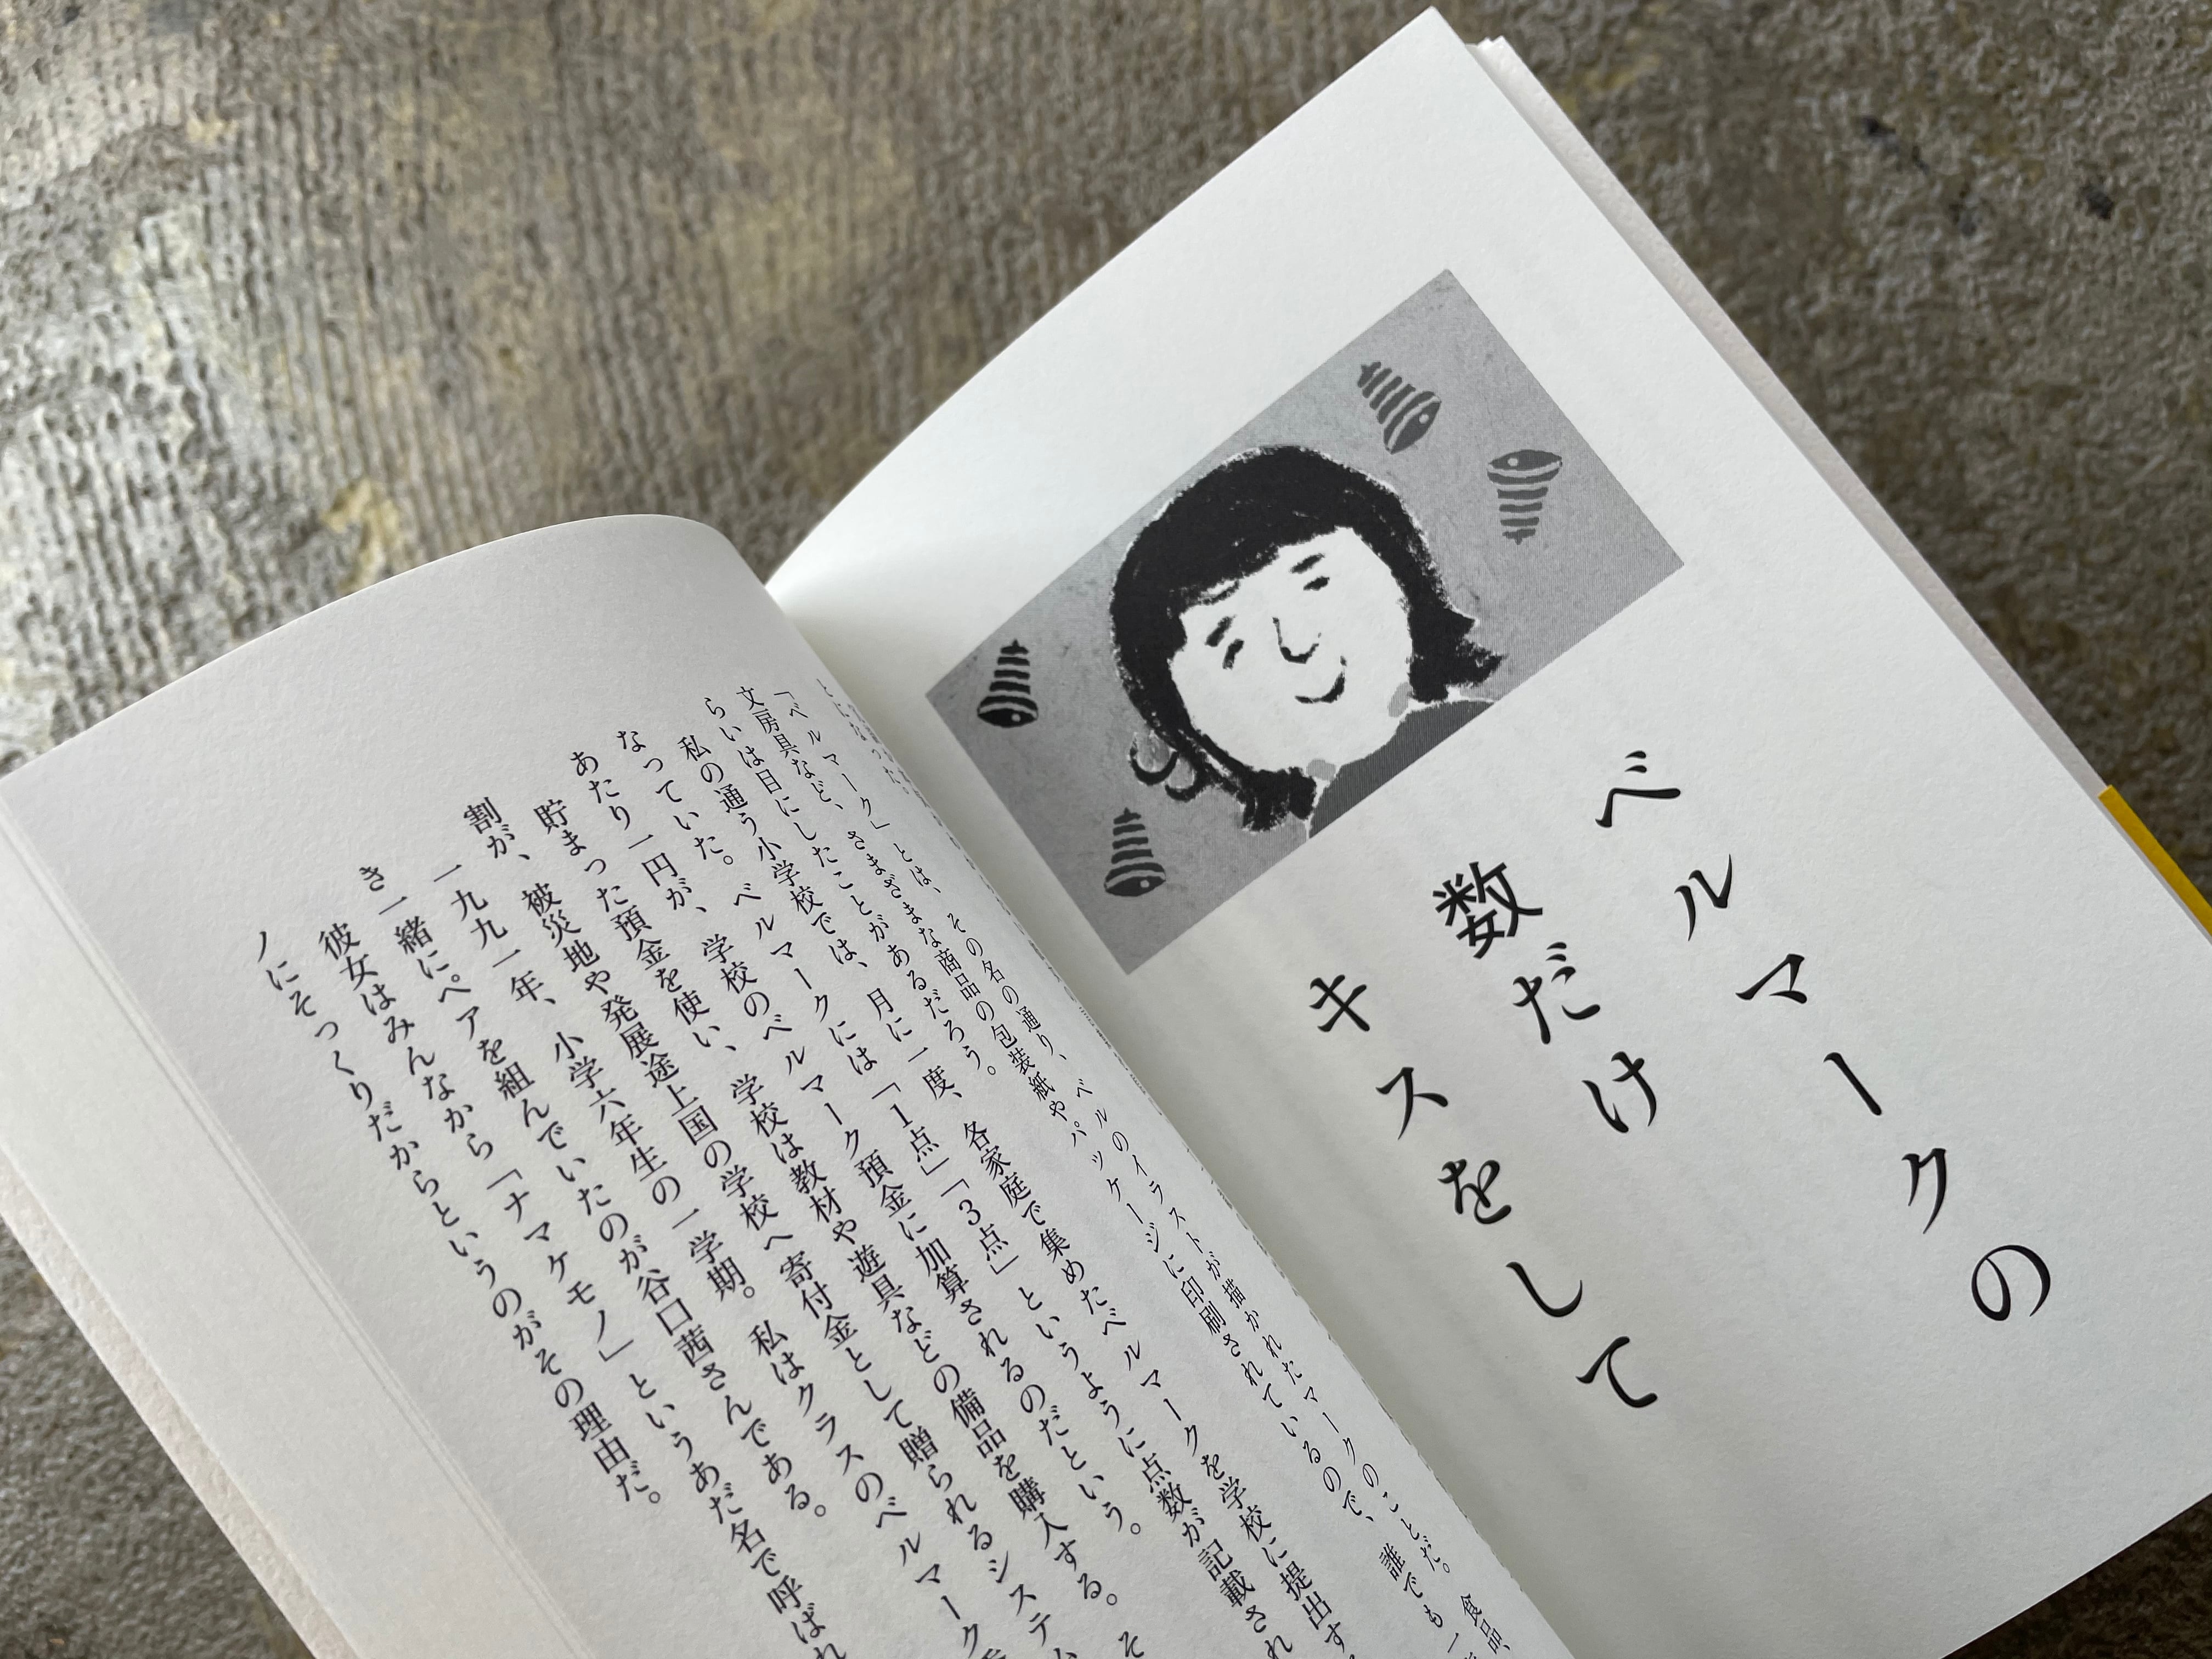 ベルマークの
数だけ
キスをして
「ベルマーク」とは、その名の通り、ベルのイラストが描かれたマークのことだ。食品、
文房具など、さまざまな商品の包装紙やパッケージに印刷されているので、誰でも一
らいは目にしたことがあるだろう。
私の通う小学校では、月に一度、各家庭で集めたベルマークを学校に提出す
なっていた。ベルマークには「1点」「3点」というように点数が記載され
あたり一円が、学校のベルマーク預金に加算されるのだという。
貯まった預金を使い、学校は教材や遊具などの備品を購入する。そ
割が、被災地や発展途上国の学校へ寄付金として贈られるシステム
一九九一年、小学六年生の一学期。私はクラスのベルマーク
き一緒にペアを組んでいたのが谷口茜さんである。
彼女はみんなから「ナマケモノ」というあだ名で呼ばれ
ノにそっくりだからというのがその理由だ。